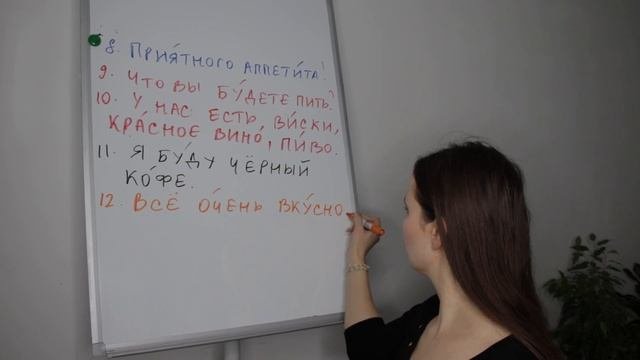 8. ПРИЯ́ТНОГО АППЕТИ́ТА!
9. ЧТО ВЫ БУ́ДЕТЕ ПИТЬ?
10. У НАС ЕСТЬ ВИ́СКИ,
КРА́СНОЕ ВИНО́, ПИ́ВО.
11. Я БУ́ДУ ЧЁРНЫЙ
КО́ФЕ.
12. ВСЁ О́ЧЕНЬ ВКУ́СНО